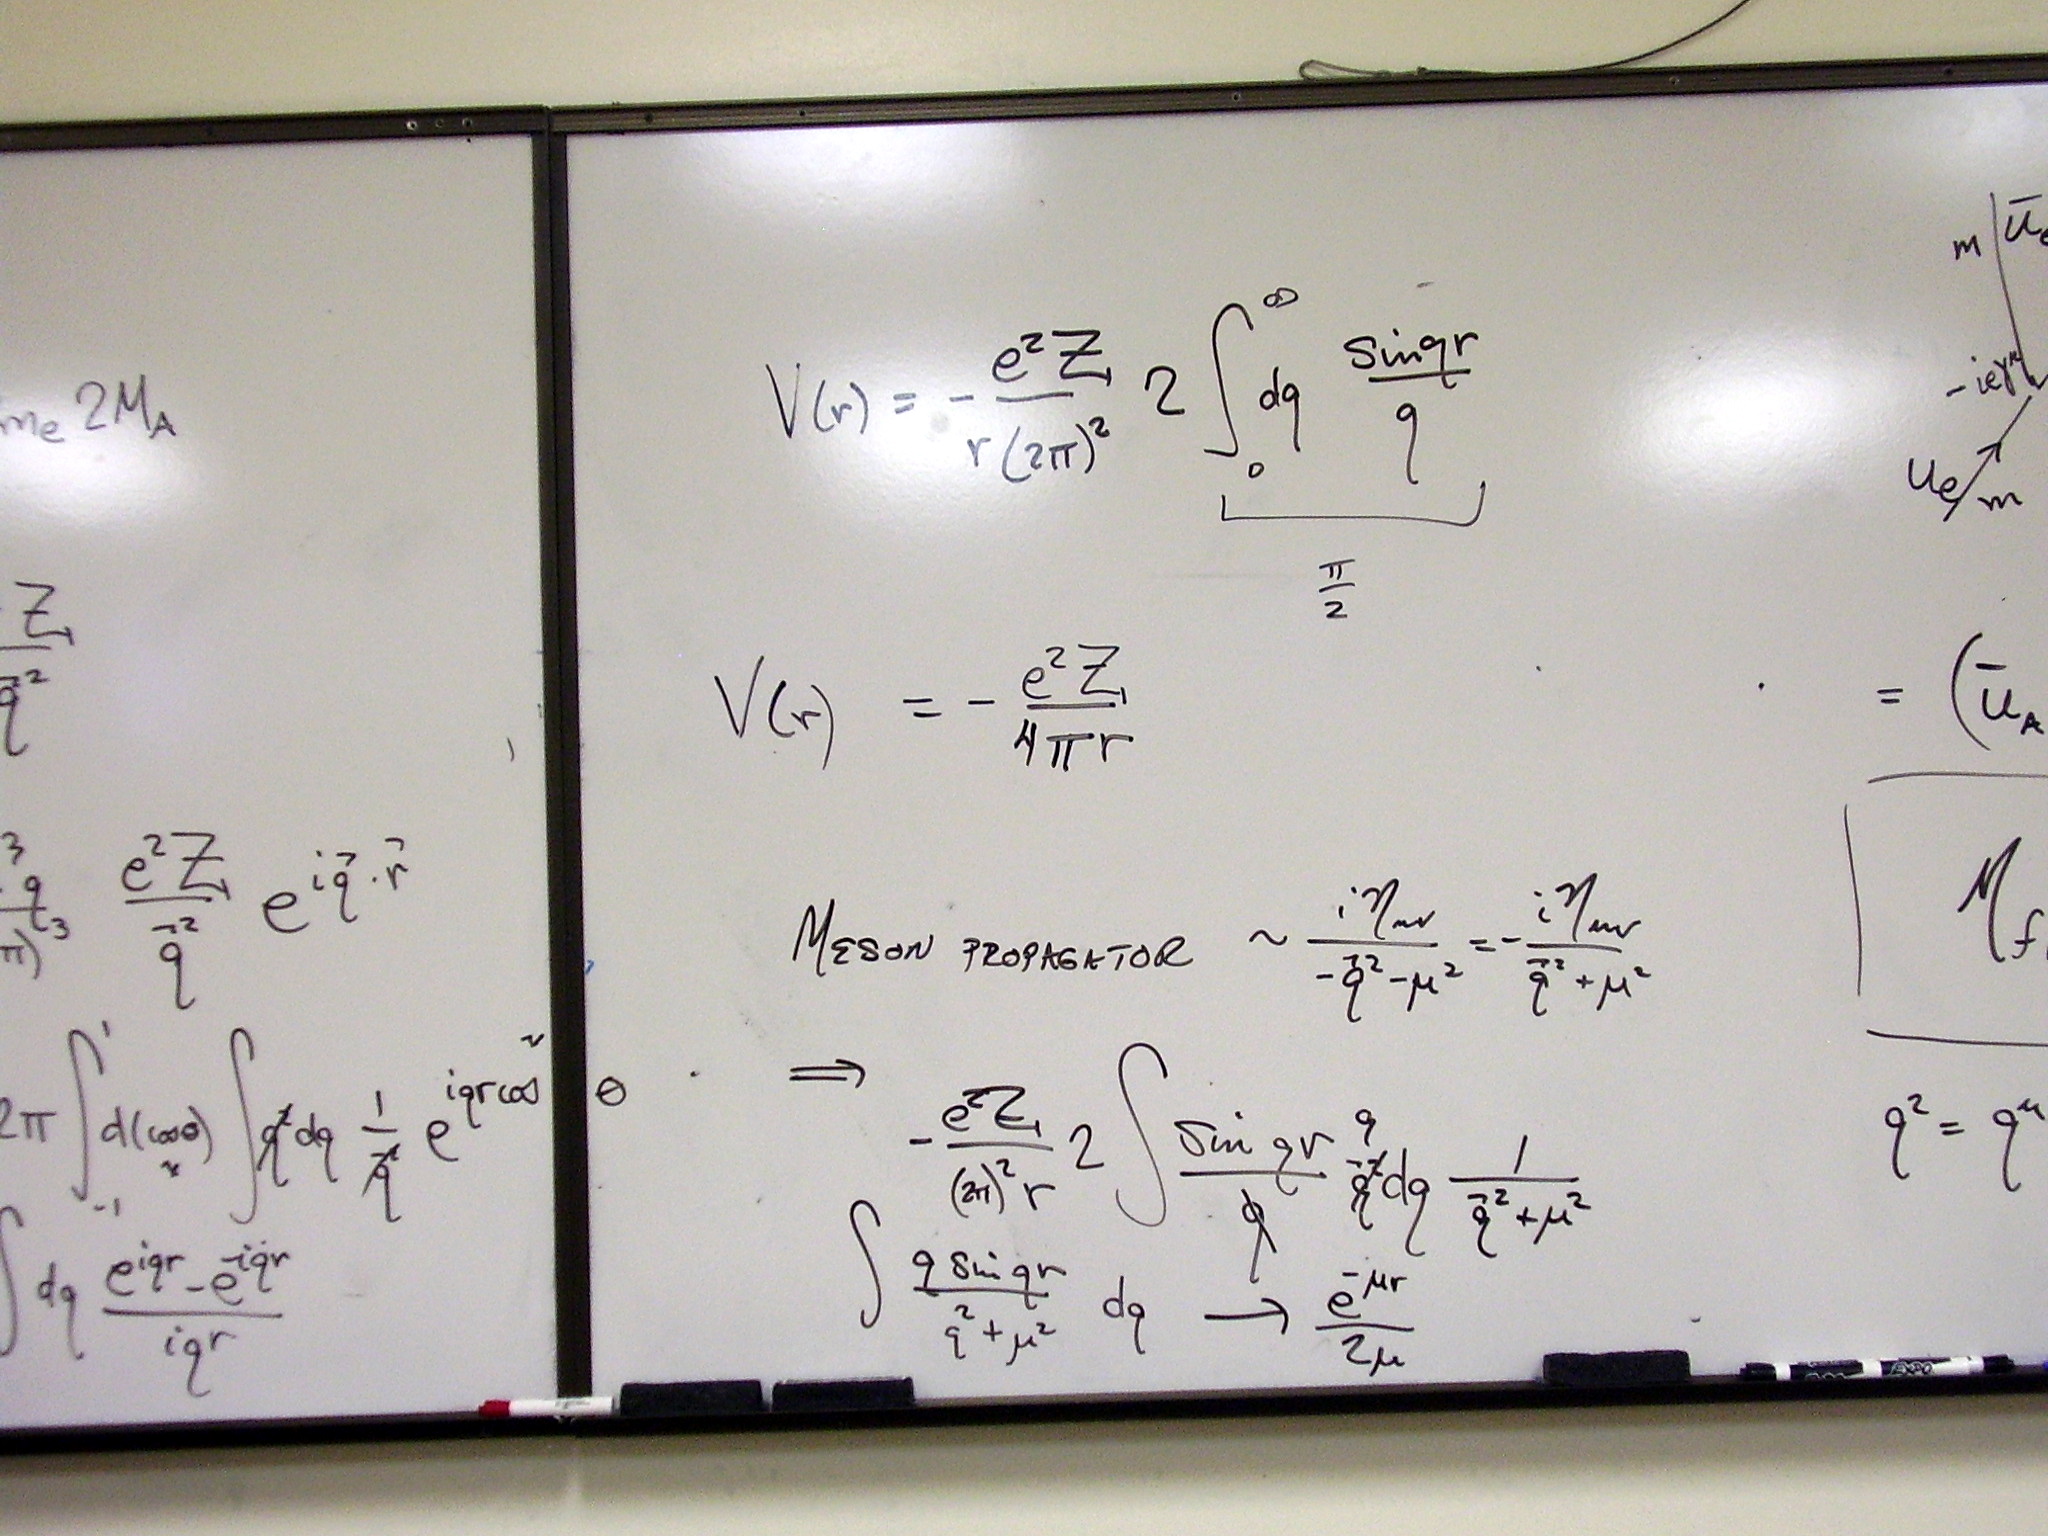 m_e 2M_A
Z
q⃗²
³q e²Z e^{iq⃗·r⃗}
π)³ q⃗²
2π ∫_{-1}^{1} d(cosθ) ∫ q² dq 1/q² e^{iqr cosθ}
∫ dq (e^{iqr} - e^{-iqr})/iqr
V(r) = - e²Z/(r(2π)²) 2 ∫_0^∞ dq sinqr/q
π/2
V(r) = - e²Z/(4πr)
MESON PROPAGATOR ~ iη_{μν}/(-q⃗²-μ²) = - iη_{μν}/(q⃗²+μ²)
⇒ - e²Z/((2π)² r) 2 ∫ sin qr/q q q⃗² dq 1/(q⃗²+μ²)
∫ q sin qr/(q²+μ²) dq → e^{-μr}/2μ
m ū_e
-ieγ^μ
u_e m
= (ū_A
M_f
q² = q^μ